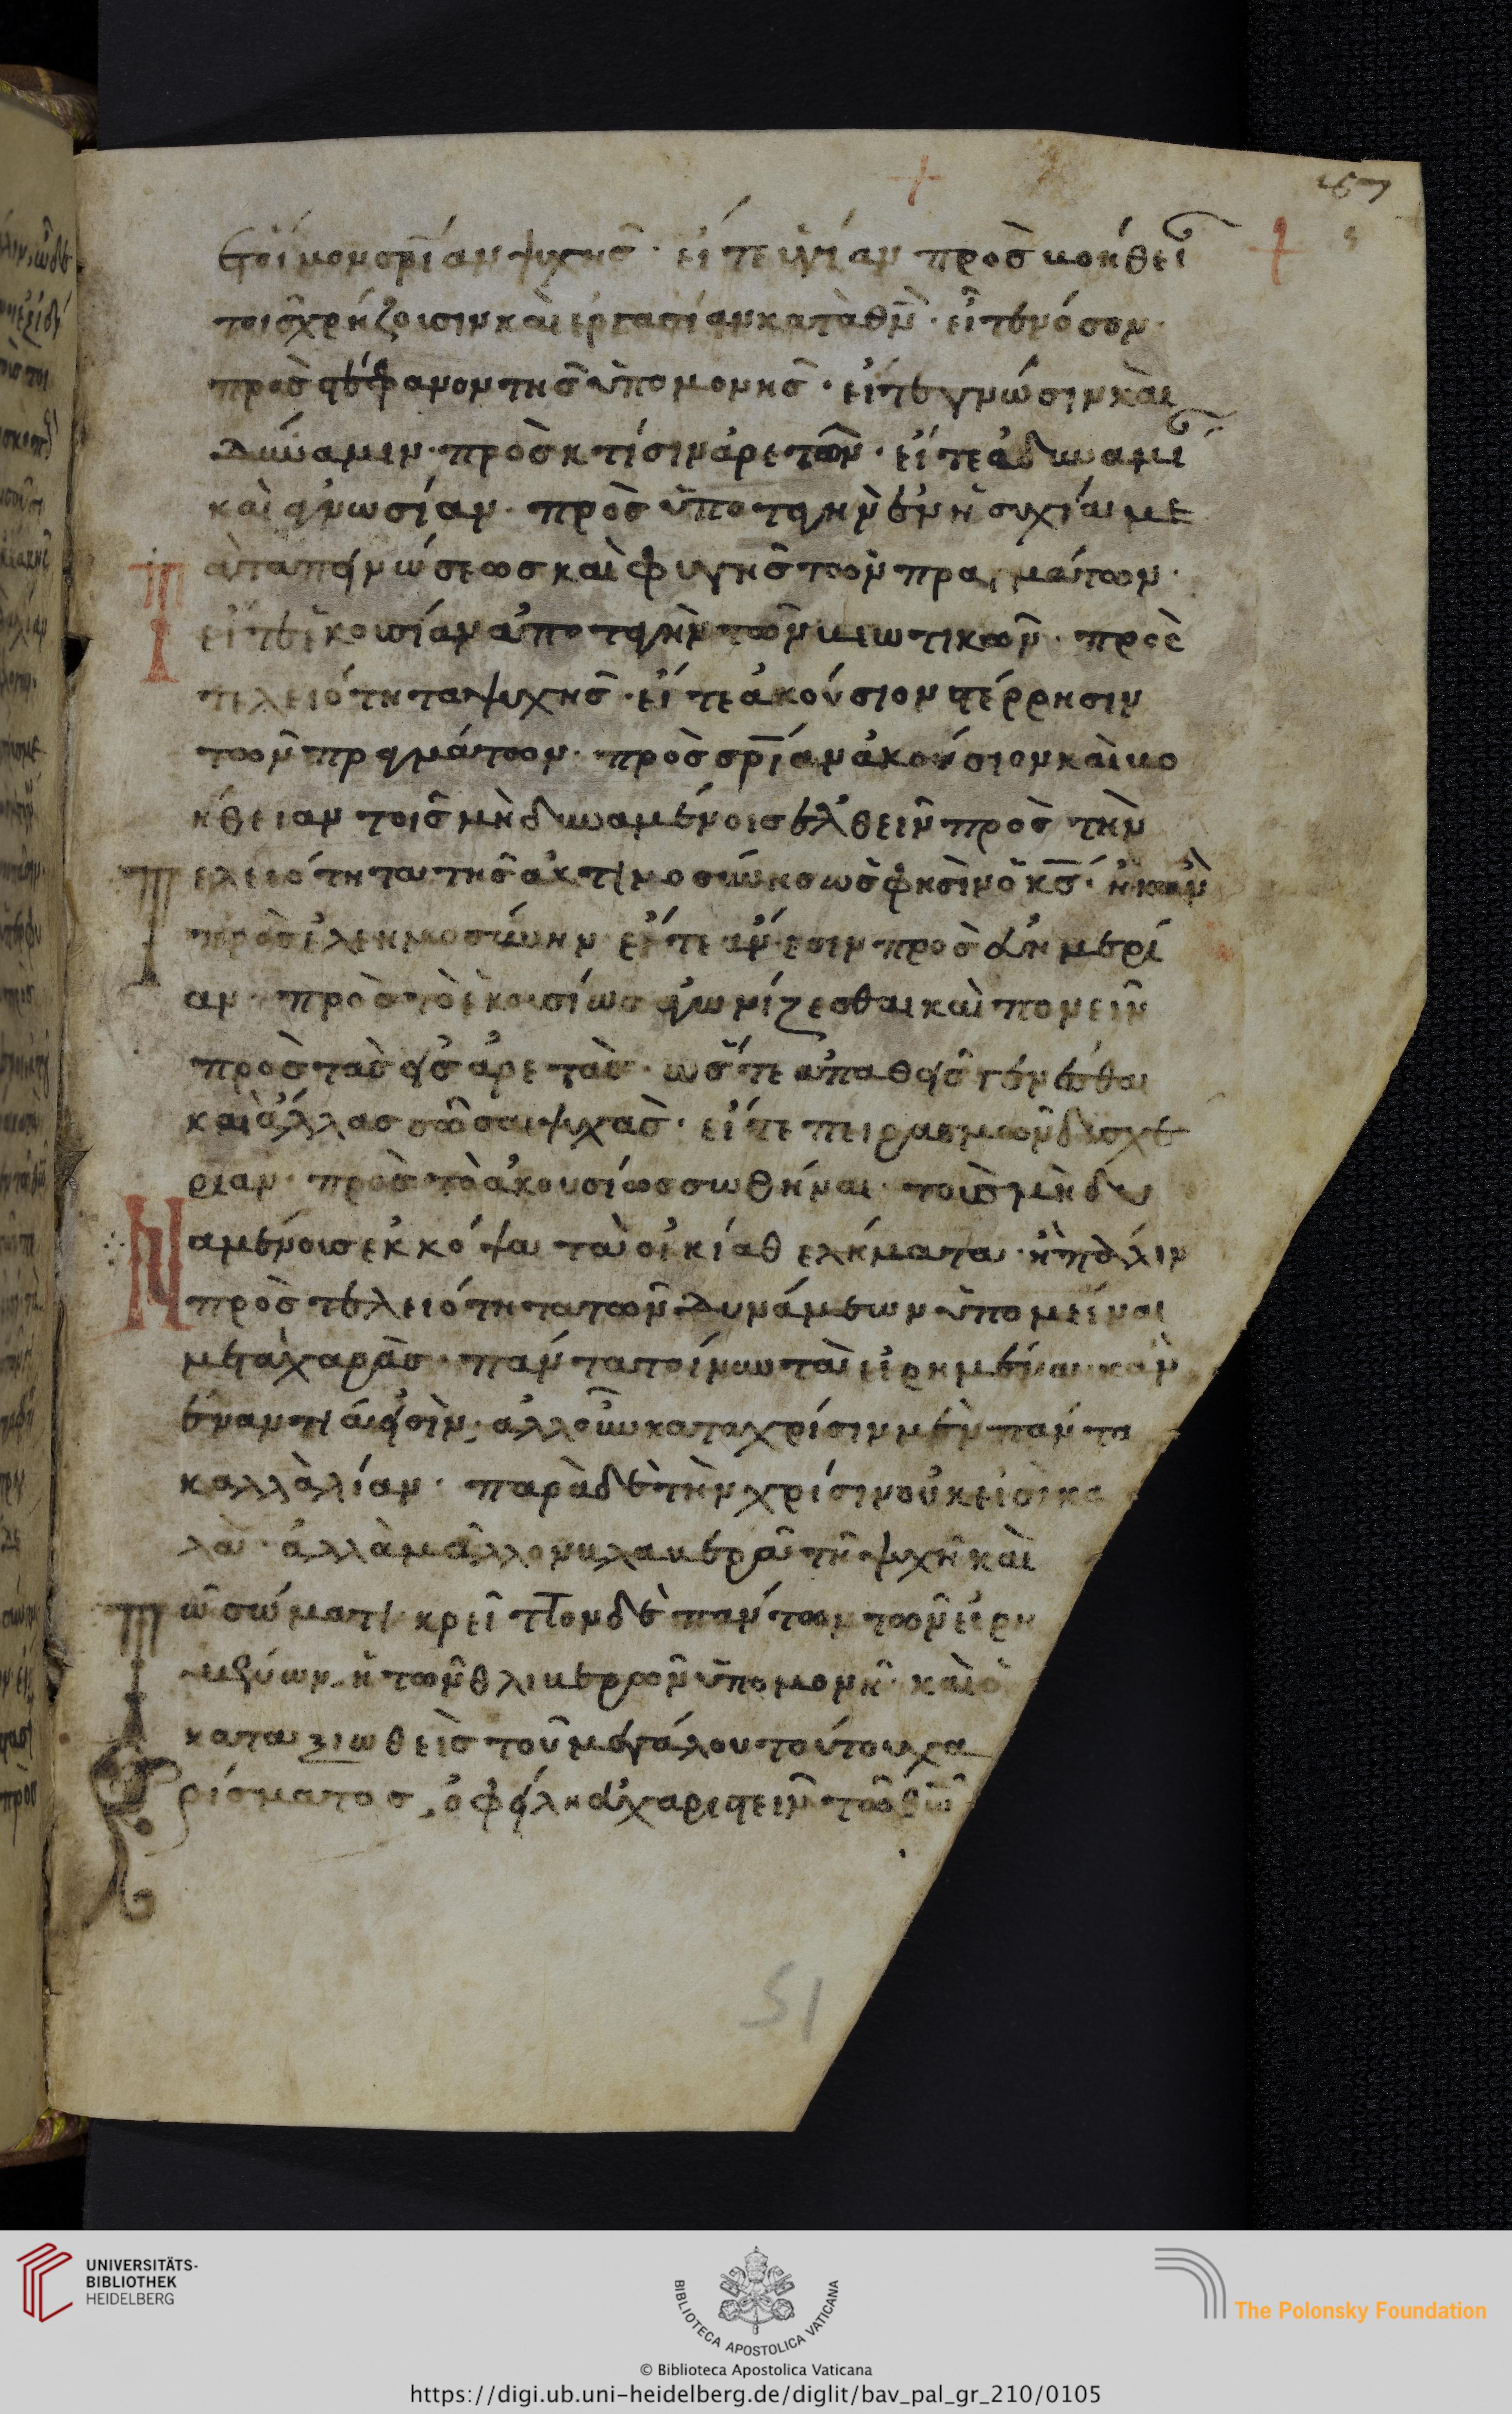 57
ἑτοίμον σρίαν ψυχῆσ · εἴτε ὑγίαν προσ βοήθει
τοῖσ χρήζουσιν καὶ ἐργασίαν κατὰ θν · εἴτε νόσον ·
προσ στέφανον τῆσ ὑπομονῆσ · εἴτε γνώσιν καὶ
δύναμιν · πρὸσ κτίσιν ἀρετῶν · εἴτε ἀδυναμι
καὶ ἀγνωσίαν · πρὸσ ὑποταγὴν ἐν ἡσυχία με
αταπεινώσεωσ καὶ φυγῆσ τῶν πραγμάτων ·
εἴτε ἑκουσίαν ἀποταγὴν τῶν βιωτικῶν · πρὸσ
τελειότητα ψυχῆσ · εἴτε ἀκούσιον στέρρησιν
τῶν πραγμάτων · πρὸσ σρίαν ἀκούσιον καὶ βο
ήθειαν τοῖσ μὴ δυναμένοισ ἐλθεῖν πρὸσ τὴν
ελειότητα τῆσ ἀκτιμοσύνησ ὡσ φησὶν ὁ κσ · ἢ κἂν
πρὸσ ἐλεημοσύνην εἴτε ἄνεσιν προσ εὐημερί
αν · πρὸσ τὸ ἑκουσίωσ ἀγωνίζεσθαι καὶ πονεῖν
προσ τὰσ ἀρετὰσ · ὥστε ἀπαθεῖσ γενέσθαι
καὶ ἄλλασ σῶσαι ψυχὰσ · εἴτε πειρασμῶν δυσχε
ριαν · πρὸσ τὸ ἀκουσίωσ σωθῆναι · τοῖσ μὴ δυ
αμένοισ ἐκκόψαι τὰ οἰκία θελήματα · ἢ πάλιν
πρὸσ τελειότητα τῶν δυναμένων ὑπομεῖναι
μετὰ χαρᾶσ · πάντα τοίνυν τὰ εἰρημένα κἂν
ἐναντία εἰσὶν · ἀλλοῦν κατα χρίσιν μὲν πάντα
καλλὰ λίαν · παρὰ δὲ τὴν χρίσιν οὐκ εἰσὶ κα
λὰ · ἀλλὰ μᾶλλον βλαβερὰ τῆ ψυχῆ καὶ
ῶ σώματι κρεῖττον δὲ πάντων τῶν εἰρη
μένων ἡ τῶν θλιβερῶν ὑπομονή · καὶ ὁ
καταξιωθεὶσ τοῦ μεγάλου τούτου χα
ρίσματοσ, ὀφείλει εὐχαριστεῖν τῶ θῶ
51
UNIVERSITÄTS-
BIBLIOTHEK
HEIDELBERG
BIBLIOTECA APOSTOLICA VATICANA
The Polonsky Foundation
© Biblioteca Apostolica Vaticana
https://digi.ub.uni-heidelberg.de/diglit/bav_pal_gr_210/0105